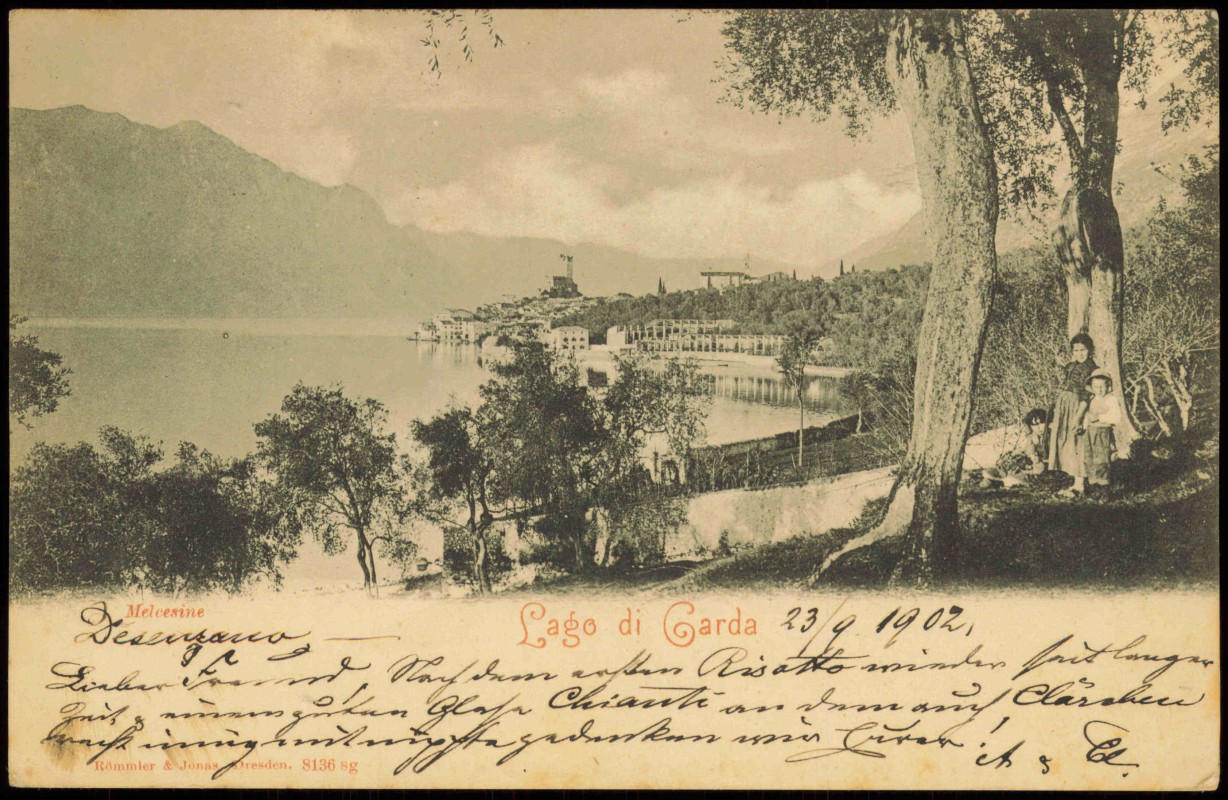 Melcesine
Lago di Garda
23/9 1902.
Desenzano
Lieber Freund, Nach dem ersten Risotto wieder seit langer
Zeit & einem guten Glase Chianti an dem auch Clärchen
recht innig mitnippte gedenken wir Eurer!
A & Cl.
Römmler & Jonas, Dresden. 8136 sg